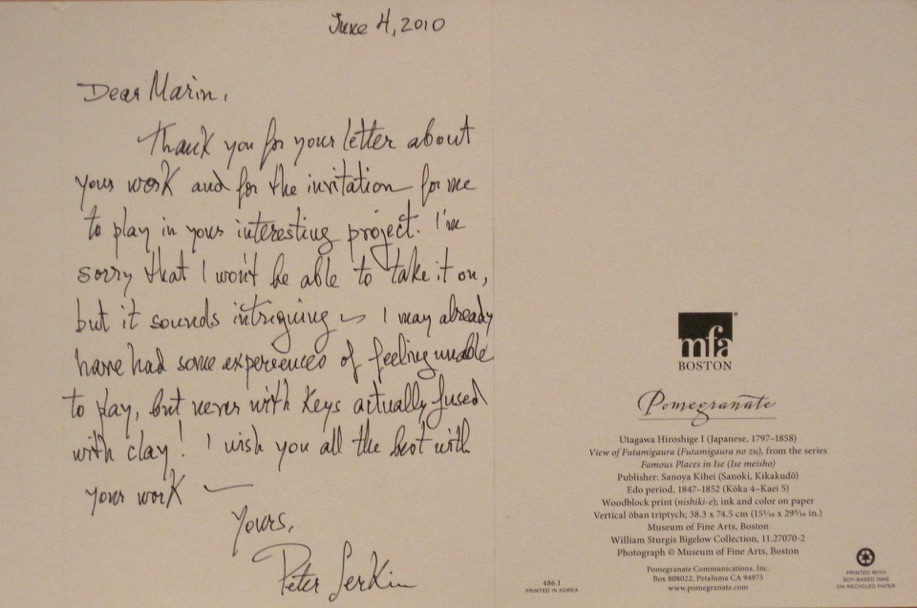 June 4, 2010
Dear Marin,
Thank you for your letter about
your work and for the invitation for me
to play in your interesting project. I'm
sorry that I won't be able to take it on,
but it sounds intriguing ~ I may already
have had some experiences of feeling unable
to play, but never with keys actually fused
with clay! I wish you all the best with
your work —
Yours,
Peter Serkin
mfa®
BOSTON
Pomegranate
Utagawa Hiroshige I (Japanese, 1797–1858)
View of Futamigaura (Futamigaura no zu), from the series
Famous Places in Ise (Ise meisho)
Publisher: Sanoya Kihei (Sanoki, Kikakudō)
Edo period, 1847–1852 (Kōka 4–Kaei 5)
Woodblock print (nishiki-e); ink and color on paper
Vertical ōban triptych; 38.3 x 74.5 cm (15 1/16 x 29 5/16 in.)
Museum of Fine Arts, Boston
William Sturgis Bigelow Collection, 11.27070-2
Photograph © Museum of Fine Arts, Boston
Pomegranate Communications, Inc.
Box 808022, Petaluma CA 94975
www.pomegranate.com
486.1
PRINTED IN KOREA
PRINTED WITH
SOY-BASED INKS
ON RECYCLED PAPER